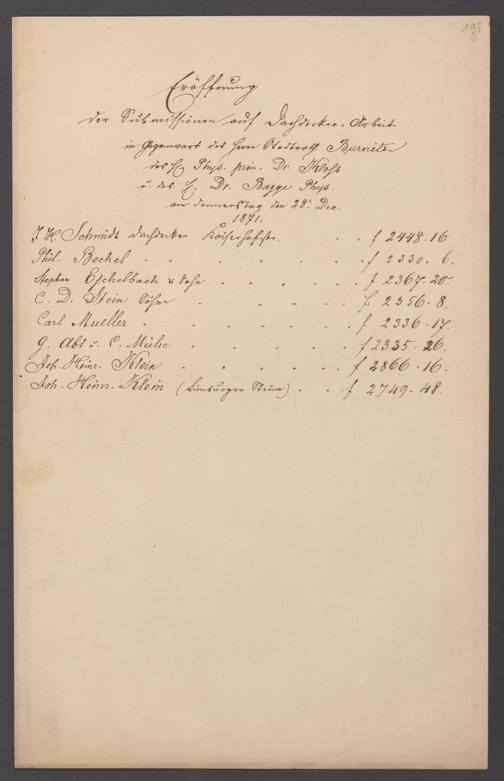 195
Eröffnung
der Submissionen auf Dachdecker-Arbeit
in Gegenwart des Herrn Stadtrath Burnitz
des H. Phys. prim. Dr. Kloss
u. des H. Dr. Bagge Phys.
am Donnerstag den 28. Dec.
1871.
J. H. Schmidt Dachdecker Kaiserhofstr. . . f 2448.16
Phil. Bechel . . . . . . . f 2330. 6.
Stephan Eschelbach & Sohn . . . . . f 2367.20.
C. D. Stein Söhne . . . . . . f 2356. 8.
Carl Mueller . . . . . . . f 2336.17.
G. Abt u. C. Mühe . . . . . f 2335.26.
Joh. Heinr. Klein . . . . . f 2866.16.
Joh. Heinr. Klein (Limburger Stein) . . f 2749.48.